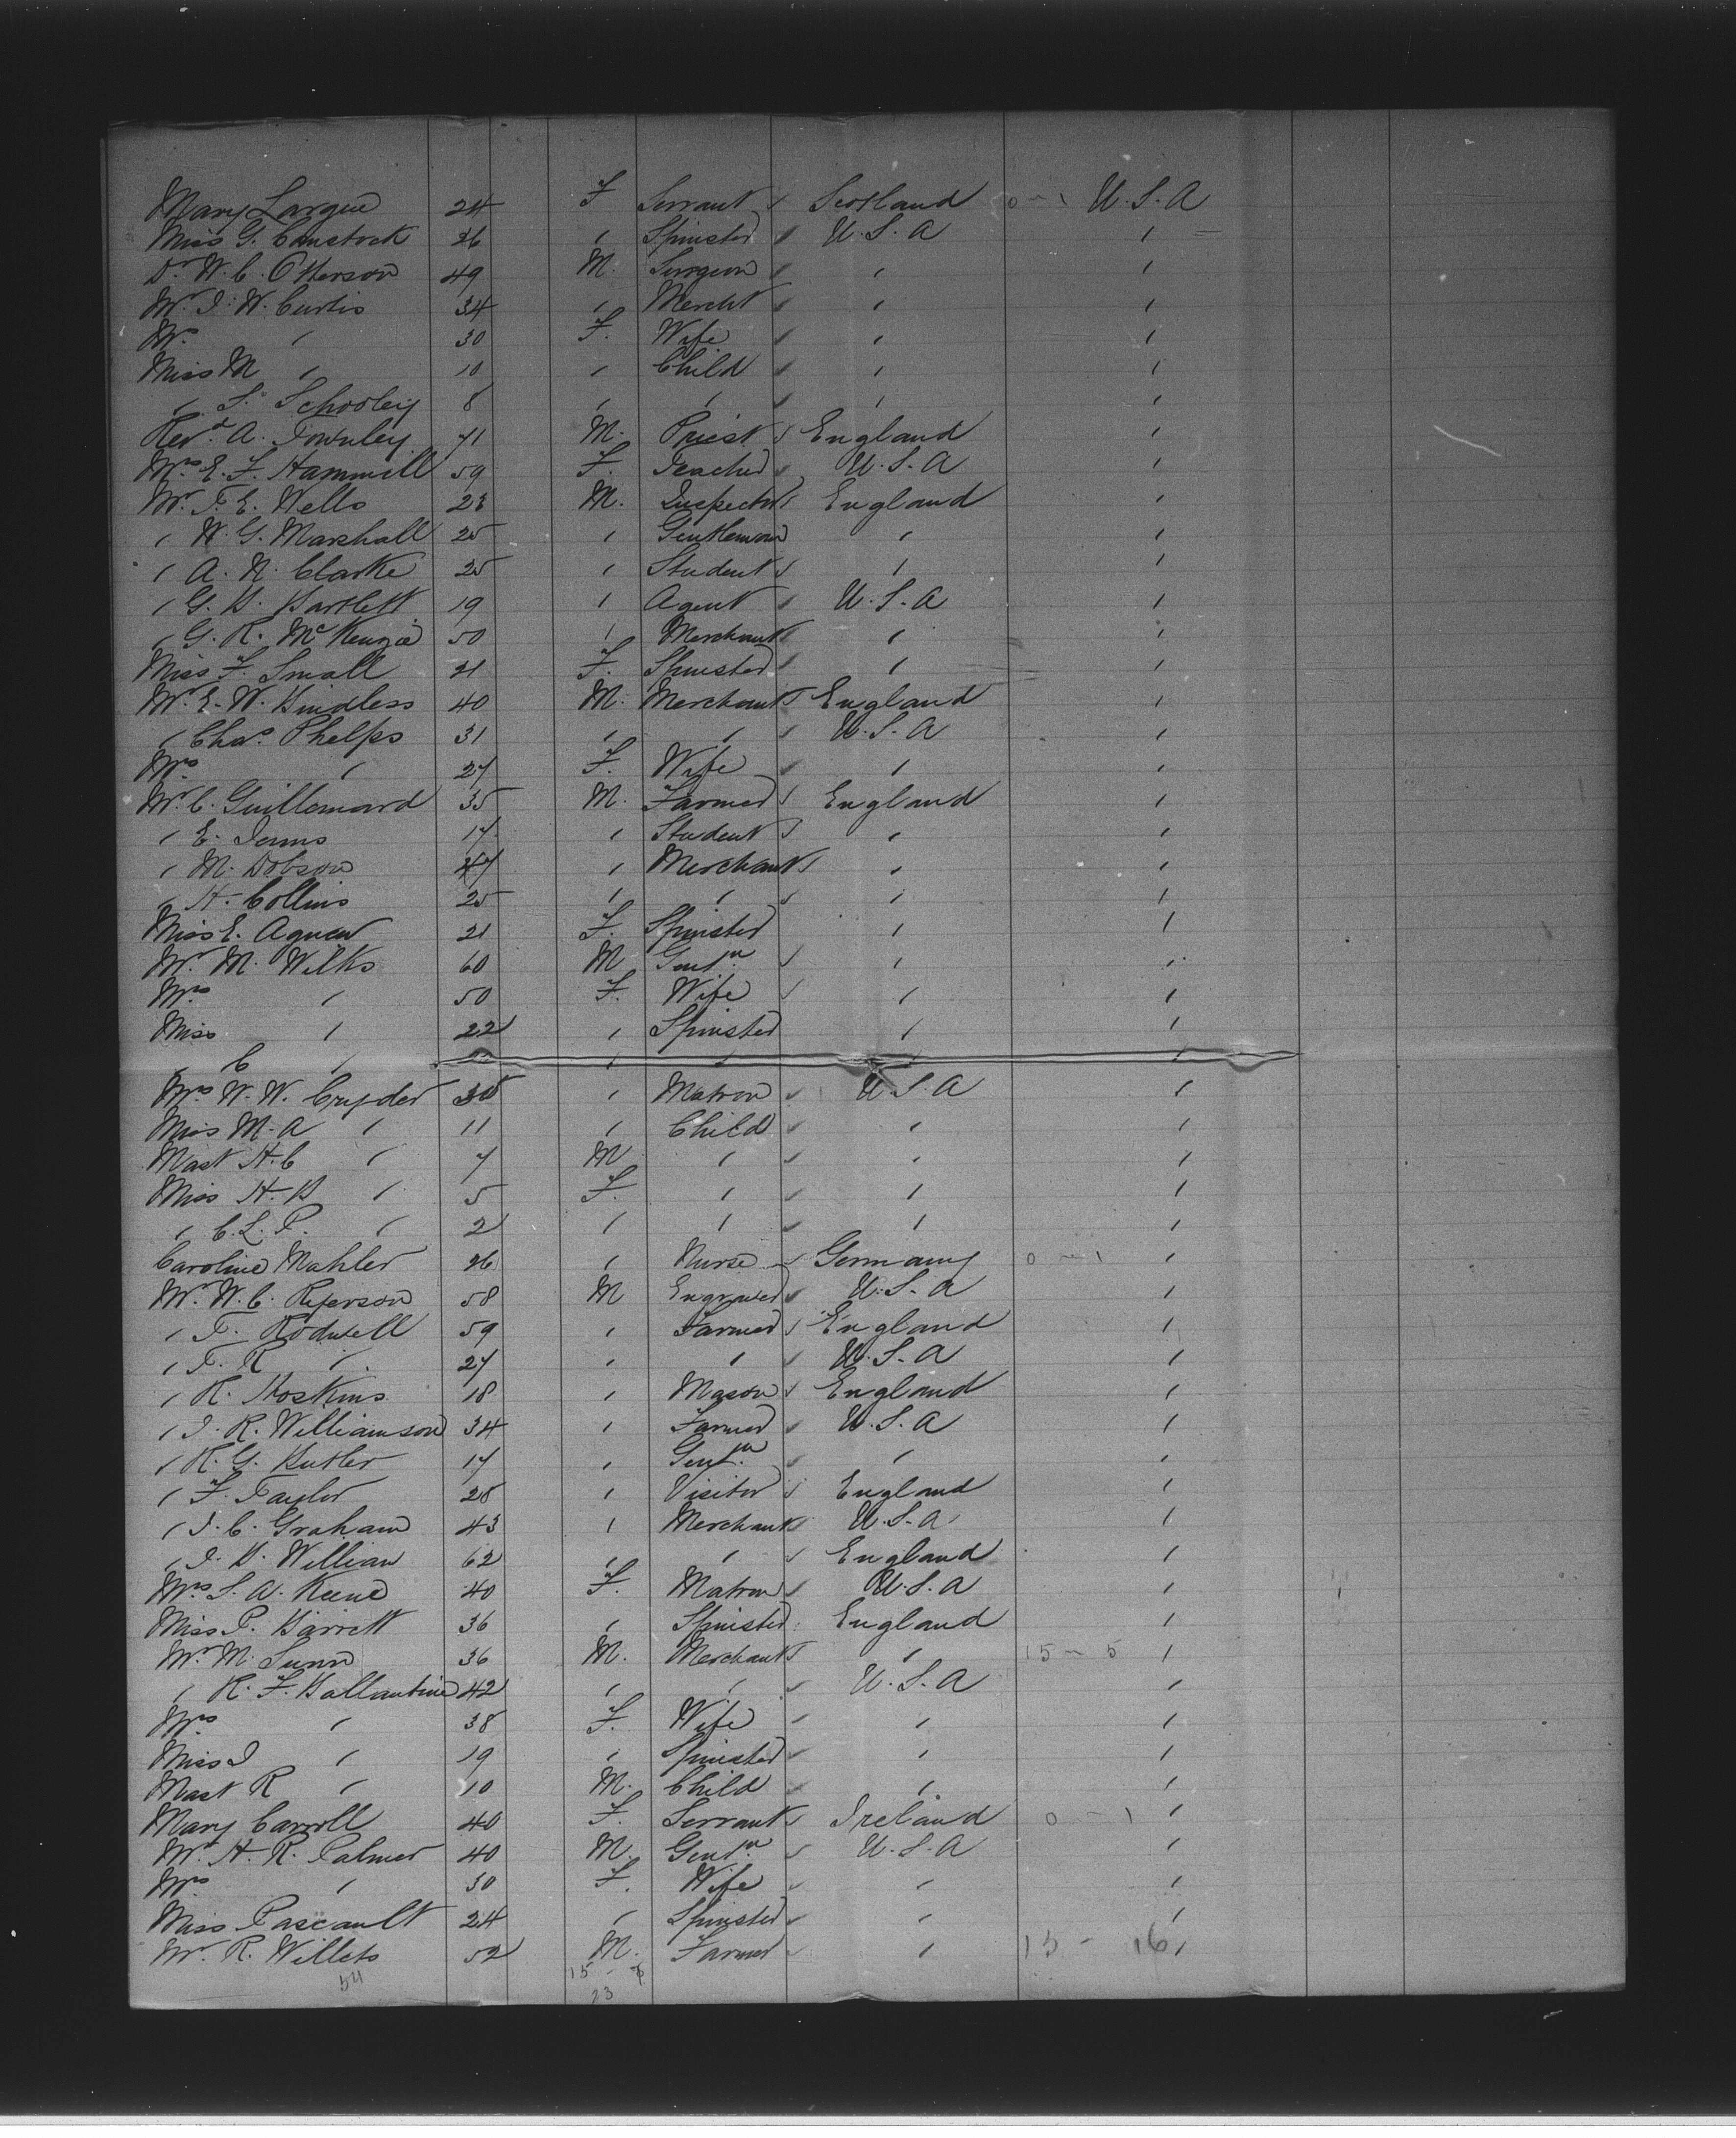 Mary Largue 24 F Servant Scotland 0 - 1 U.S.A
Miss G. Comstock 26 " Spinster U.S.A "
Dr. W.C. Otterson 49 M. Surgeon " "
Mr. J.W. Curtis 34 " Mercht " "
Mrs. " 30 F. Wife " "
Miss M " 10 " Child " "
" S. Schooley 8 " " " "
Revd. A. Townley 71 M. Priest England "
Mrs. E.F. Hammill 59 F. Teacher U.S.A "
Mr. T.E. Wells 23 M. Inspector England "
" W.G. Marshall 25 " Gentleman " "
" A.N. Clarke 25 " Student " "
" G.B. Bartlett 19 " Agent U.S.A "
" G.R. McKenzie 50 " Merchant " "
Miss F. Small 21 F. Spinster " "
Mr. E.W. Bindless 40 M. Merchant England "
" Chas. Phelps 31 " " U.S.A "
Mrs. " 27 F. Wife " "
Mr. C. Guillemard 35 M. Farmer England "
" E. 17 " Student " "
" M. Dobson 47 " Merchant " "
" H. Collins 25 " " " "
Miss E. Agnew 21 F. Spinster " "
Mr. M. Wilks 60 M Gentn. " "
Mrs " 50 F. Wife " "
Miss " 22 " Spinster " "
" C " " " "
Mrs W.W. Cryder 30 " Matron U.S.A "
Miss M.A " 11 " Child " "
Mast H.C " 7 M " " "
Miss H.B " 5 F. " " "
" C.L.P. " 2 " " " "
Caroline Mahler 26 " Nurse Germany 0 - 1 "
Mr. W.C. 58 M Engraver U.S.A "
" T. Rodwell 59 " Farmer England "
" T.R " 27 " " U.S.A "
" R. Hoskins 18 " Mason England "
" J.R. Williamson 34 " Farmer U.S.A "
" R.G. Butler 17 " Gentn. " "
" F. Taylor 28 " Visitor England "
" J.C. Graham 43 " Merchant U.S.A "
" J.B. William 62 " " England "
Mrs S.A. Keene 40 F. Matron U.S.A "
Miss P. Barrett 36 " Spinster England "
Mr. M. 36 M. Merchant " 15 - 5 "
" R.F. Ballantine 42 " " U.S.A "
Mrs " 38 F. Wife " "
Miss J " 19 " Spinster " "
Mast R " 10 M. Child " "
Mary Carroll 40 F. Servant Ireland 0 - 1 "
Mr. H.R. Palmer 40 M. Gentn. U.S.A "
Mrs " 30 F. Wife " "
Miss Pascault 24 " Spinster " "
Mr. R. Willets 52 M. Farmer " 13 - 16 "
54 15 - 7
23